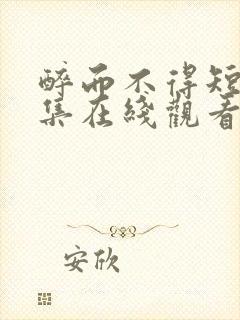 醉而不得短
集在綫觀看
安欣